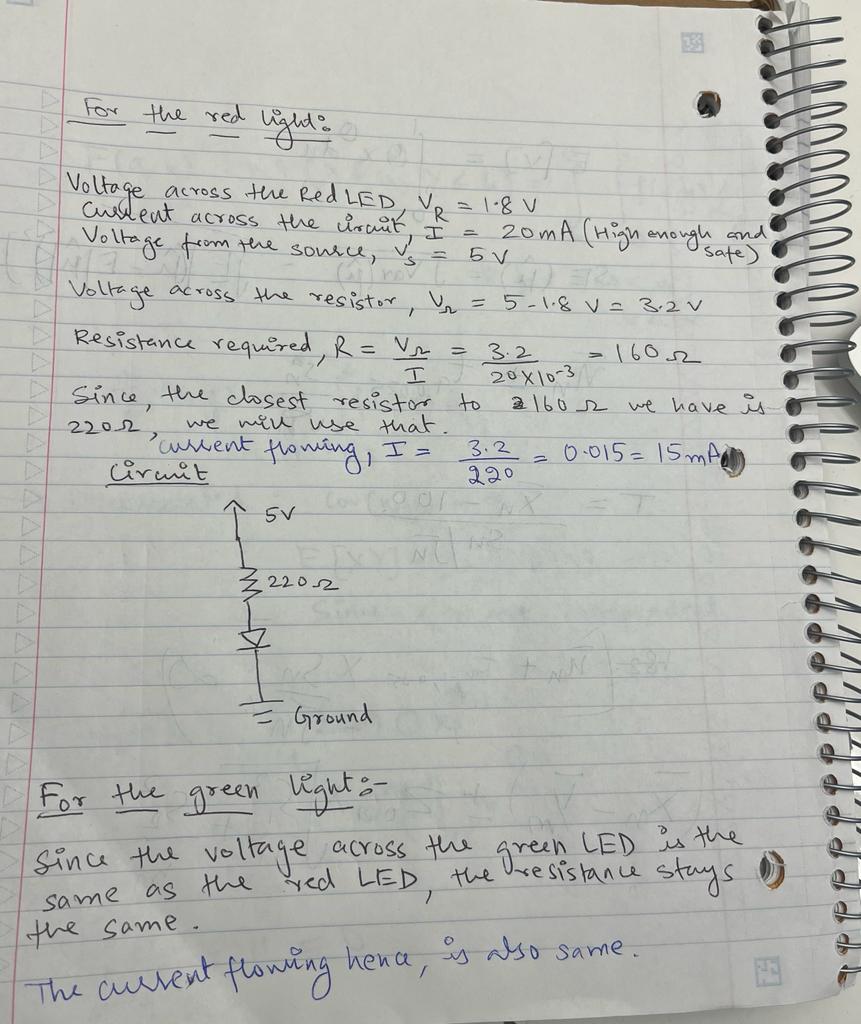 For the red light:
Voltage across the Red LED, V_R = 1.8 V
Current across the circuit, I = 20mA (High enough and safe)
Voltage from the source, V_s = 5 V
Voltage across the resistor, V_Ω = 5-1.8 V = 3.2 V
Resistance required, R = V_Ω / I = 3.2 / 20×10^-3 = 160 Ω
Since, the closest resistor to 160 Ω we have is
220Ω, we will use that.
current flowing, I = 3.2 / 220 = 0.015 = 15mA
Circuit
5V
220Ω
Ground
For the green light:-
Since the voltage across the green LED is the
same as the red LED, the resistance stays
the same.
The current flowing hence, is also same.